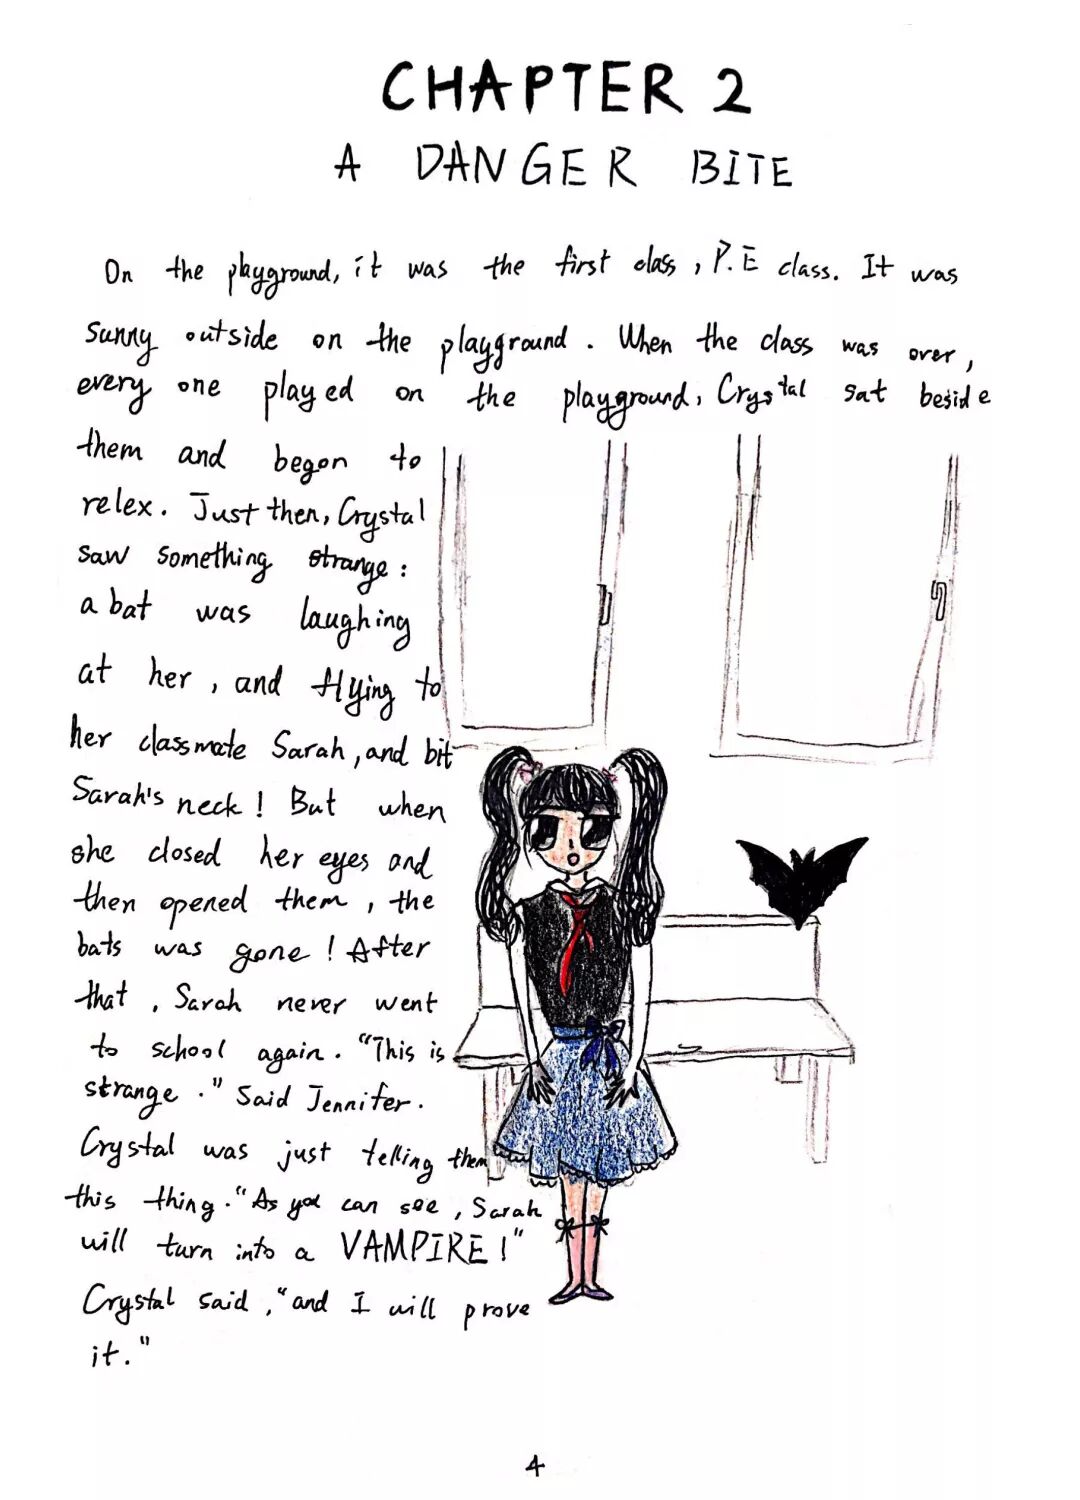 CHAPTER 2
A DANGER BITE
On the playground, it was the first class, P.E class. It was
sunny outside on the playground. When the class was over,
every one played on the playground, Crystal sat beside
them and began to
relex. Just then, Crystal
saw something strange:
a bat was laughing
at her, and flying to
her classmate Sarah, and bit
Sarah's neck! But when
she closed her eyes and
then opened them, the
bats was gone! After
that, Sarah never went
to school again. "This is
strange." Said Jennifer.
Crystal was just telling them
this thing. "As you can see, Sarah
will turn into a VAMPIRE!"
Crystal said, "and I will prove
it."
4